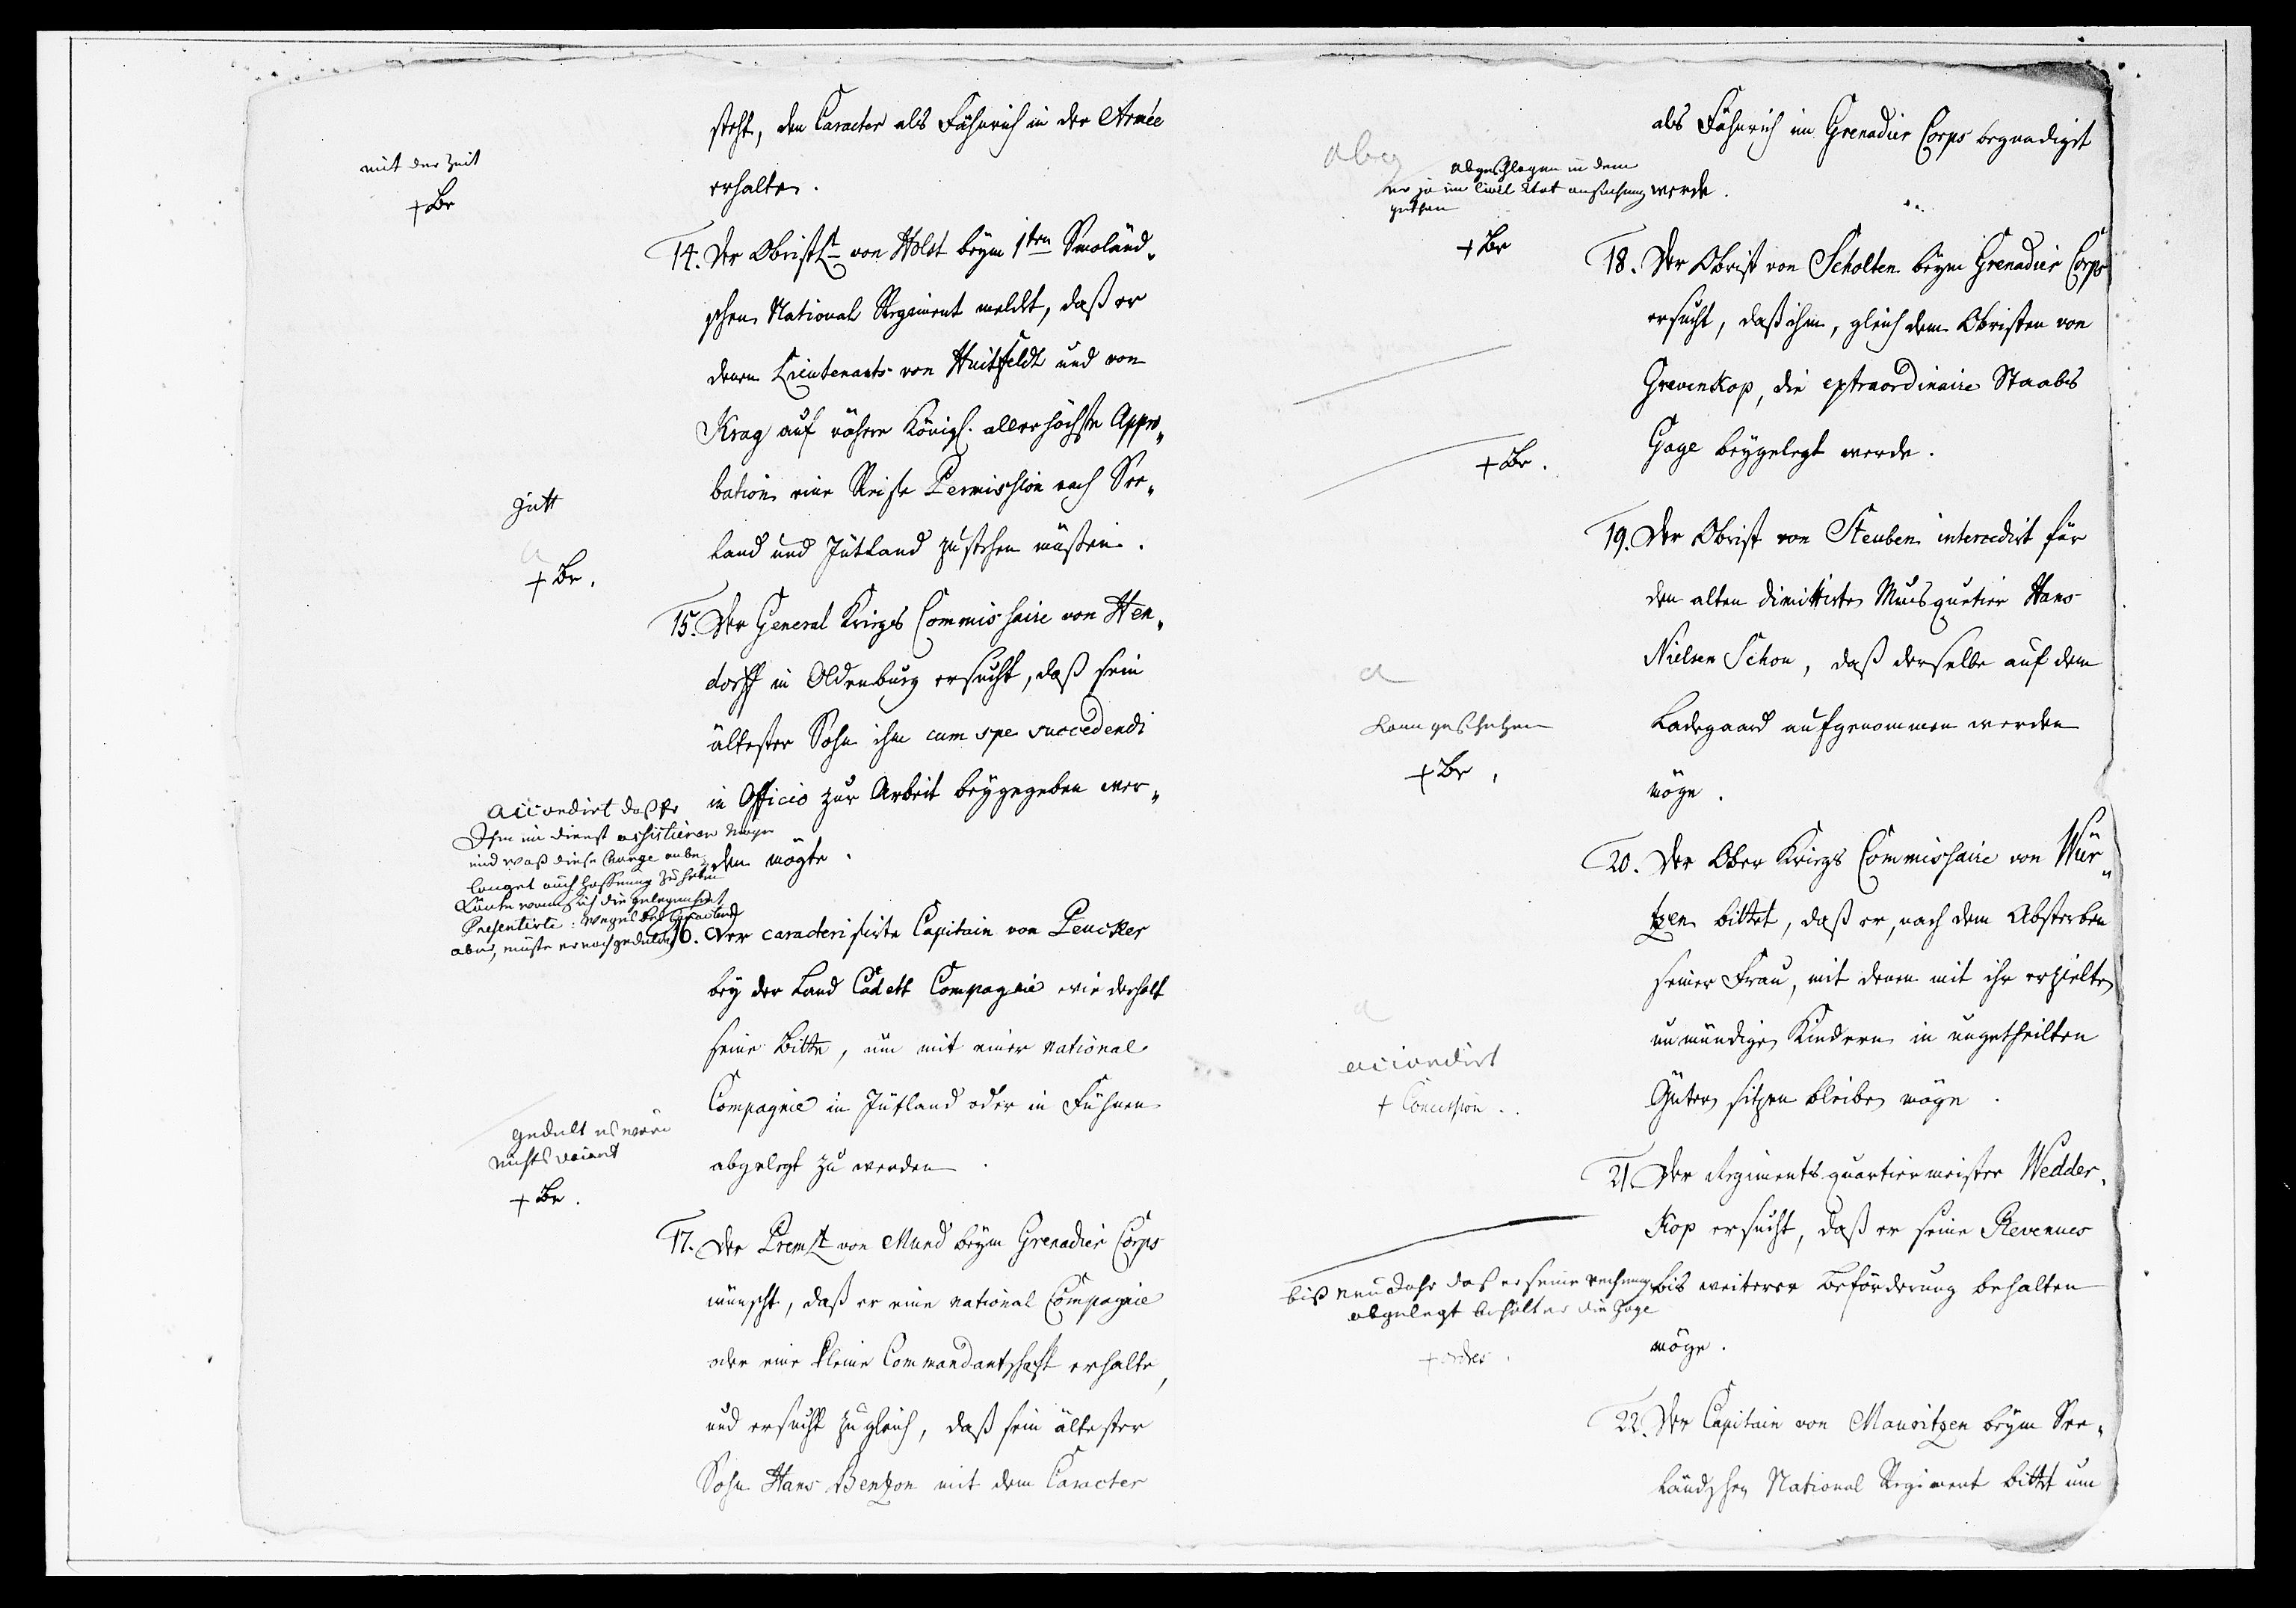 steht, den Caracter als Fähnrich in der Armée
erhalte.
mit der Zeit
+ Br
14. Der Obristlt von Holst beym 1ten Smaaländ-
schen National Regiment meldt, daß er
denen Lieutenants von Huitfeldt und von
Krag auf nähere Königl. allerhöchste Appro-
bation eine Reise Permission nach See-
land und Jütland zustehen müßen.
gutt
a
+ Br.
15. Der General Kriegs Commissaire von Hen-
dorff in Oldenburg ersucht, daß sein
ältester Sohn ihm cum spe succedendi
in Officio zur Arbeit beygegeben wer-
den mögte.
accordirt daß er
Ihm im dienst assistieren möge
und waß diese Charge anbe-
langet auch hoffnung zu haben
Könte wann sich die gelegenheit
Presentirte: wegen des Caracters
aber, müste er noch gedulden
16. Der caracterisirte Capitain von Peucker
bey der Land Cadett Compagnie wiederholt
seine Bitte, um mit einer national
Compagnie in Jütland oder in Fühnen
abgelegt zu werden.
gedult es wäre
nichts vacant
+ Br.
17. Der Premlt von Mund beym Grenadier Corps
wünscht, daß er eine national Compagnie
oder eine kleine Commandantschaft erhalte,
und ersucht zugleich, daß sein ältester
Sohn Hans Bentzon mit dem Caracter
als Fähnrich im Grenadier Corps begnadigt
werde.
abg
abgeschlagen in dem
er ja im Civil Etat ansuchung
gethan
+ Br
18. Der Obrist von Scholten beym Grenadier Corps
ersucht, daß ihm, gleich dem Obristen von
Grevenkop, die extraordinaire Staabs
Gage beygelegt werde.
+ Br.
19. Der Obrist von Steuben intercedirt für
den alten dimittirten Musquetier Hans
Nielsen Schou, daß derselbe auf dem
Ladegaard aufgenommen werden
möge.
a
kann geschehen
+ Br.
20. Der Ober Kriegs Commissaire von Wür-
tzen bittet, daß er, nach dem Absterben
seiner Frau, mit denen mit ihr erzielten
unmündigen Kindern in ungetheilten
Gütern sitzen bleiben möge.
a
accordirt
+ Concession.
21. Der Regimentsquartiermeister Wedder-
kop ersucht, daß er seine Revenues
bis weiterer Beförderung behalten
möge.
biß neu Jahr daß er seine rechnung
abgelegt behält er die Gage
+ ordres.
22. Der Capitain von Mauritzen beym See-
ländschen National Regiment bittet um